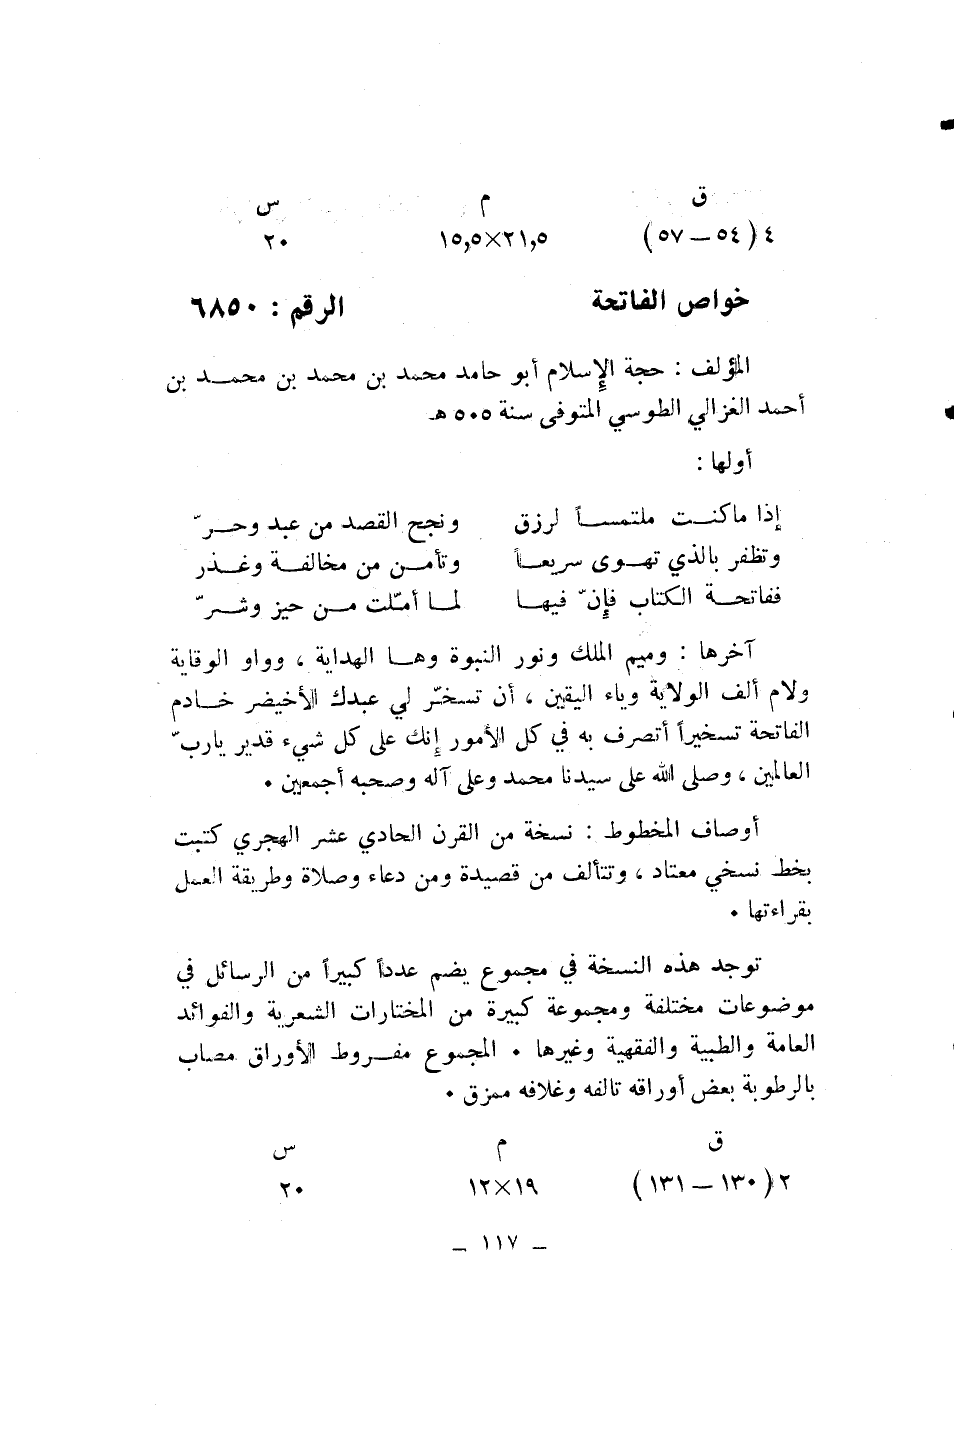 ق م س
٤ (٥٤ — ٥٧) ٢١,٥×١٥,٥ ٢٠
خواص الفاتحة الرقم : ٦٨٥٠
المؤلف : حجة الإسلام أبو حامد محمد بن محمد بن محمد بن
أحمد الغزالي الطوسي المتوفى سنة ٥٠٥ هـ
أولها :
إذا ما كنت ملتمساً لرزق ونجح القصد من عبد وحرّ
وتظفر بالذي تهوى سريعاً وتأمن من مخالفة وغذر
ففاتحة الكتاب فإنّ فيها لما أمّلت من حيز وشرّ
آخرها : وميم الملك ونور النبوة وها الهداية ، وواو الوقاية
ولام ألف الولاية وياء اليقين ، أن تسخّر لي عبدك الأخيضر خادم
الفاتحة تسخيراً أتصرف به في كل الأمور إنك على كل شيء قدير يارب ّ
العالمين ، وصلى الله على سيدنا محمد وعلى آله وصحبه أجمعين ٠
أوصاف المخطوط : نسخة من القرن الحادي عشر الهجري كتبت
بخط نسخي معتاد ، وتتألف من قصيدة ومن دعاء وصلاة وطريقة العمل
بقراءتها ٠
توجد هذه النسخة في مجموع يضم عدداً كبيراً من الرسائل في
موضوعات مختلفة ومجموعة كبيرة من المختارات الشعرية والفوائد
العامة والطبية والفقهية وغيرها ٠ المجموع مفروط الأوراق مصاب
بالرطوبة بعض أوراقه تالفه وغلافه ممزق ٠
ق م س
٢ (١٣٠ — ١٣١) ١٩×١٢ ٢٠
— ١١٧ —